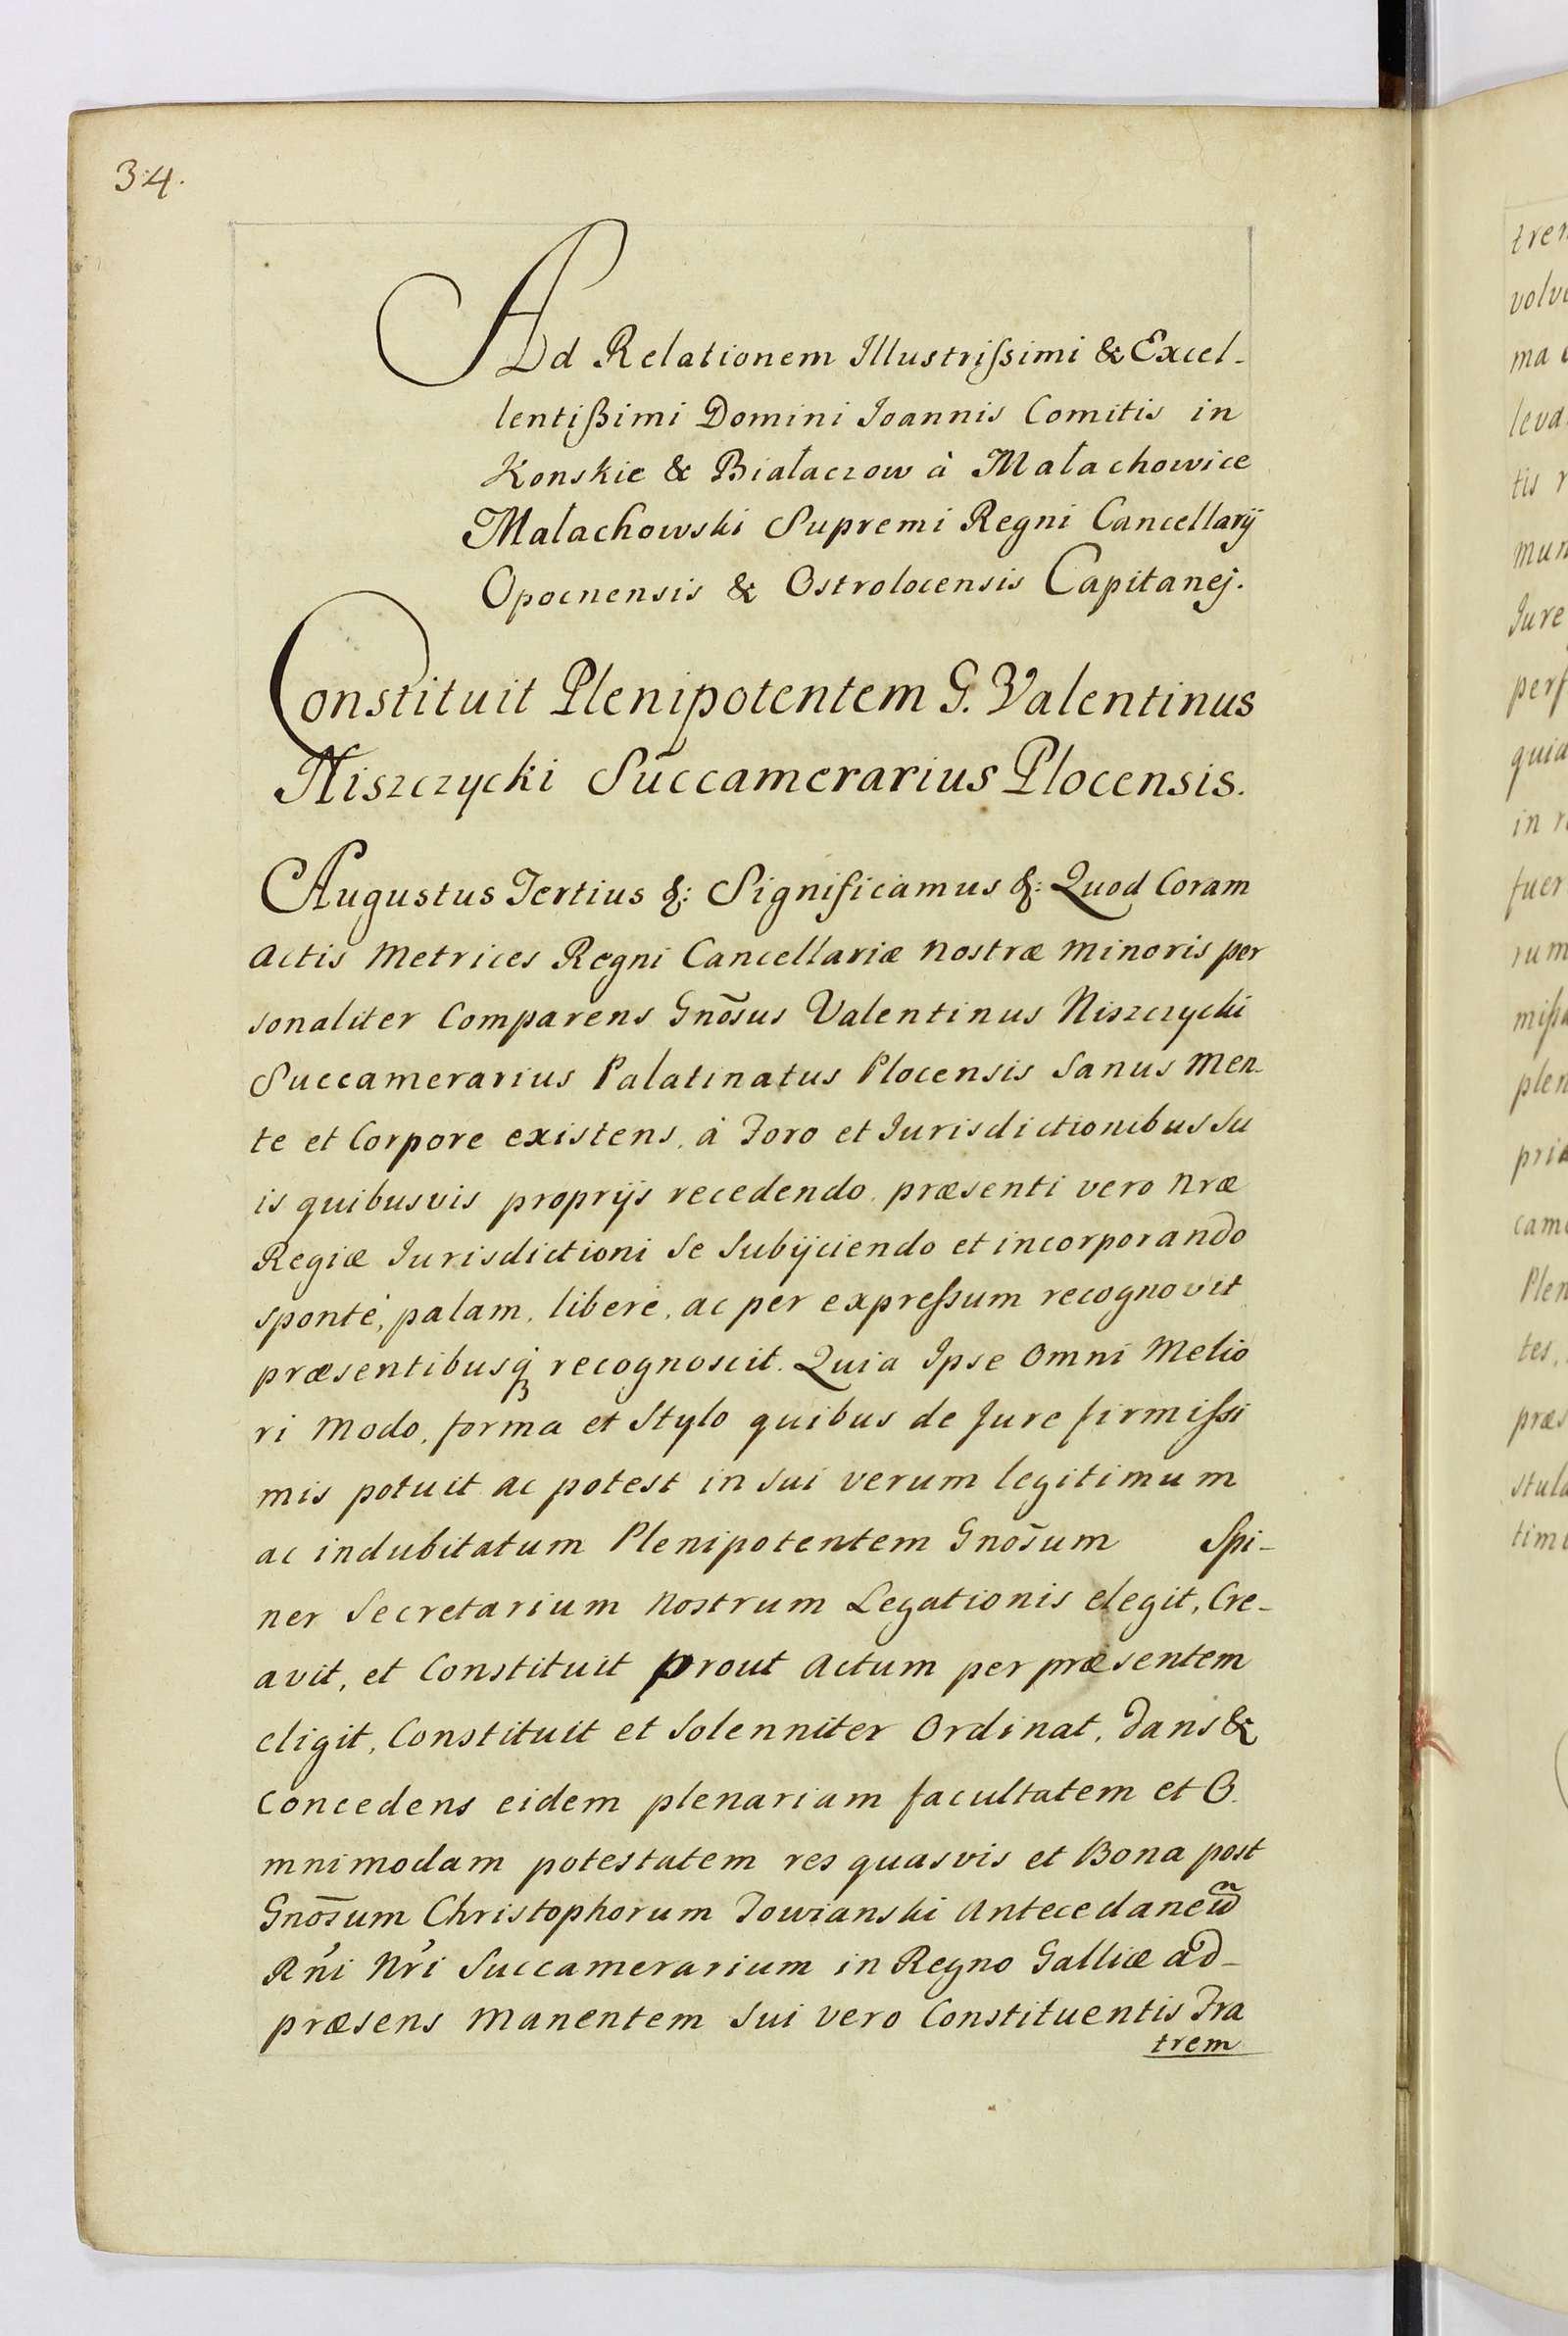 34.
Ad Relationem Illustrissimi & Excel-
lentissimi Domini Joannis Comitis in
Konskie & Białaczow à Małachowice
Małachowski Supremi Regni Cancellarij
Opocnensis & Ostrolocensis Capitanej.
Constituit Plenipotentem G. Valentinus
Niszczycki Succamerarius Plocensis.
Augustus Tertius &: Significamus &: Quod Coram
Actis Metrices Regni Cancellariæ nostræ minoris per
sonaliter Comparens Gnõsus Valentinus Niszczycki
Succamerarius Palatinatus Plocensis Sanus Men-
te et Corpore existens, à Foro et Jurisdictionibus su
is quibusvis proprijs recedendo, præsenti vero nræ
Regiæ Jurisdictioni se subijciendo et incorporando
sponte, palam, libere, ac per expressum recognovit
præsentibusq; recognoscit. Quia Ipse Omni Melio
ri Modo, forma et Stylo quibus de Jure firmissi
mis potuit ac potest in sui verum legitimum
ac indubitatum Plenipotentem Gnõsum Spi-
ner Secretarium nostrum Legationis elegit, Cre-
avit, et Constituit prout Actum per præsentem
eligit, Constituit et Solenniter Ordinat, Dans &
Concedens eidem plenariam facultatem et O.
mnimodam potestatem res quasvis et Bona post
Gnõsum Christophorum Towianski Antecedaneũ
Rñi Nri Succamerarium in Regno Galliæ ad-
præsens Manentem sui vero Constituentis Fra
trem
tren
volv
ma
leva
tis
mun
Jure
perf
quia
in
fuer
rum
missa
plen
pria
Plen
tes,
præs
stula